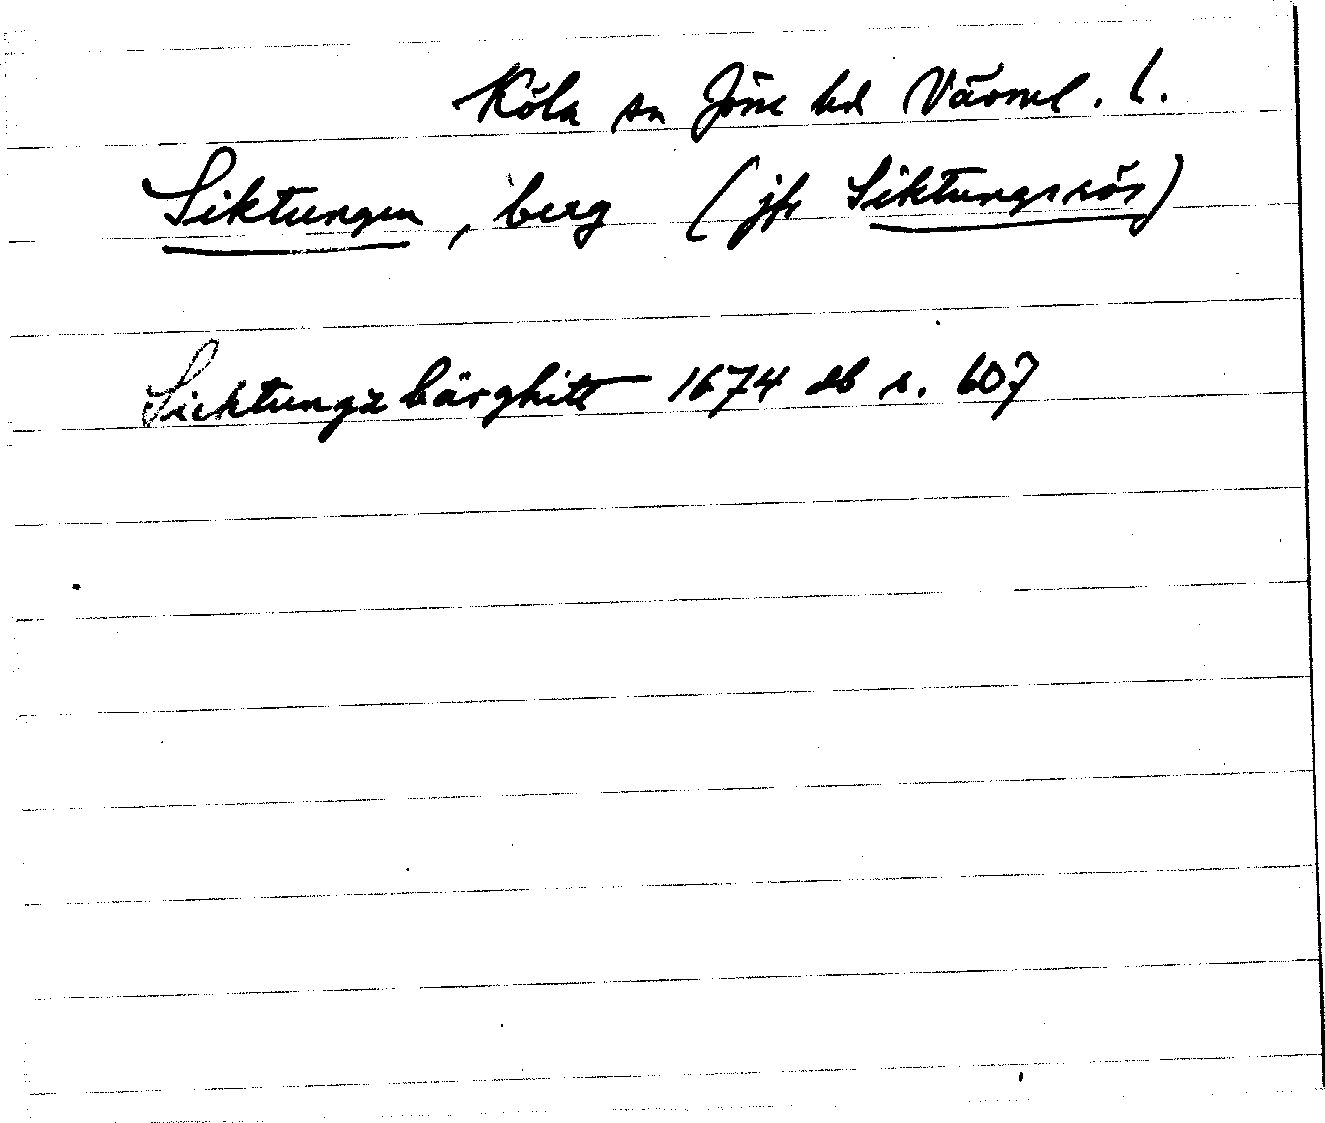 Köla sn Jöss hd Värml. l.
Siktungen, berg (jfr Siktungsrös)
Sichtungz bärghitt 1674 db s. 607